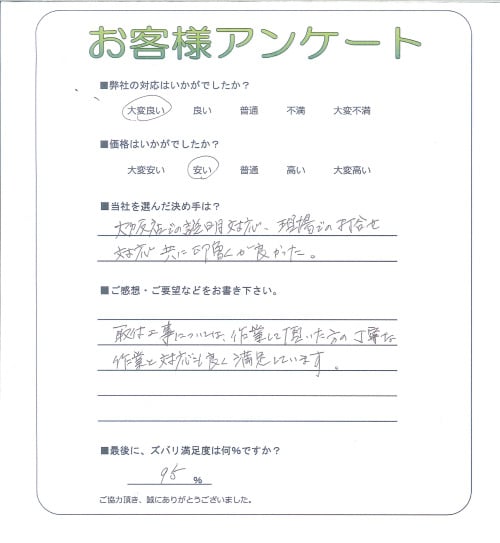 お客様アンケート
■弊社の対応はいかがでしたか？
大変良い 良い 普通 不満 大変不満
■価格はいかがでしたか？
大変安い 安い 普通 高い 大変高い
■当社を選んだ決め手は？
大阪店での説明対応、現場での打合せ
対応共に印象が良かった。
■ご感想・ご要望などをお書き下さい。
取付工事については、作業して頂いた方の丁寧な
作業と対応も良く満足しています。
■最後に、ズバリ満足度は何%ですか？
95 %
ご協力頂き、誠にありがとうございました。